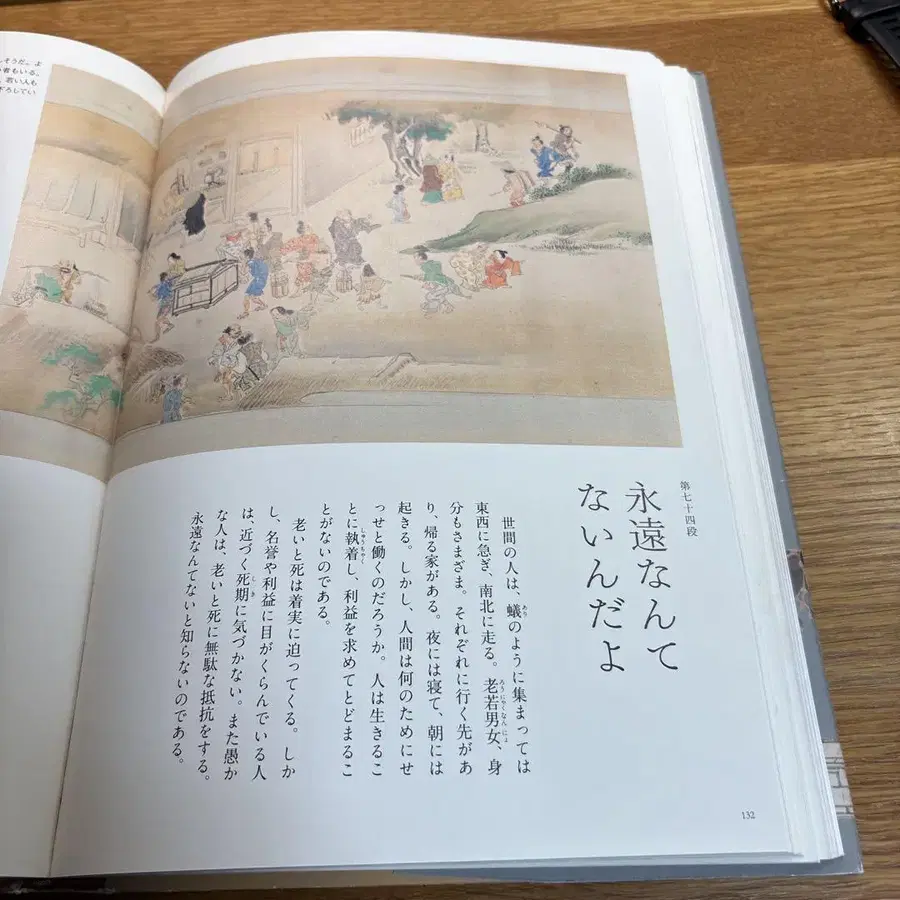 第七十四段
永遠なんて
ないんだよ
世間の人は、蟻のように集まっては
東西に急ぎ、南北に走る。老若男女、身
分もさまざま。それぞれに行く先があ
り、帰る家がある。夜には寝て、朝には
起きる。しかし、人間は何のためにせ
っせと働くのだろうか。人は生きるこ
とに執着し、利益を求めてとどまるこ
とがないのである。
老いと死は着実に迫ってくる。しか
し、名誉や利益に目がくらんでいる人
は、近づく死期に気づかない。また愚か
な人は、老いと死に無駄な抵抗をする。
永遠なんてないと知らないのである。
132
そうだ。よ
者もいる。
若い人も
ろしてい